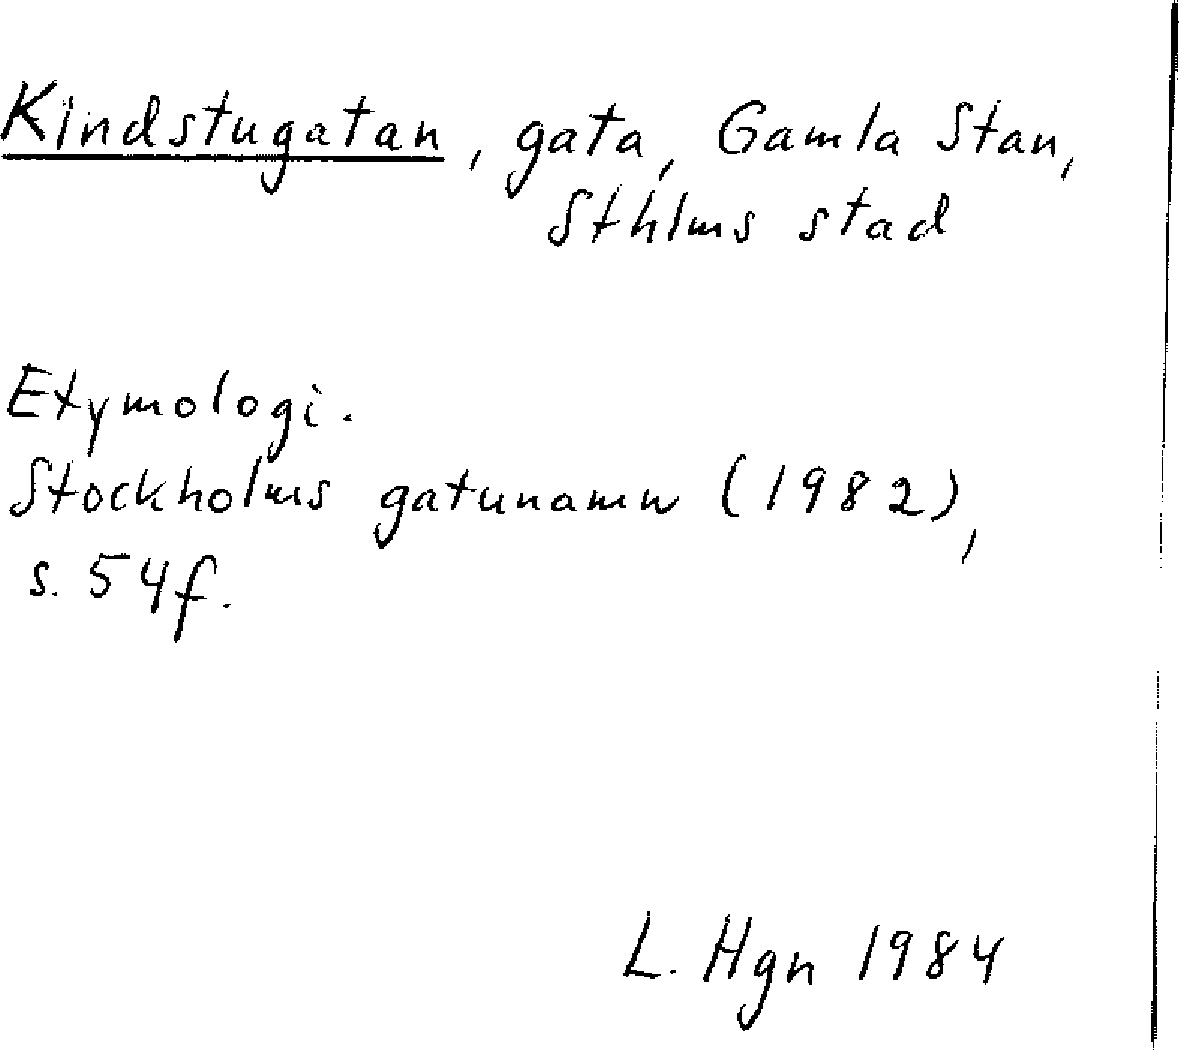 Kindstugatan, gata, Gamla Stan,
Sthlms stad
Etymologi.
Stockholms gatunamn (1982),
s. 54f.
L. Hgn 1984